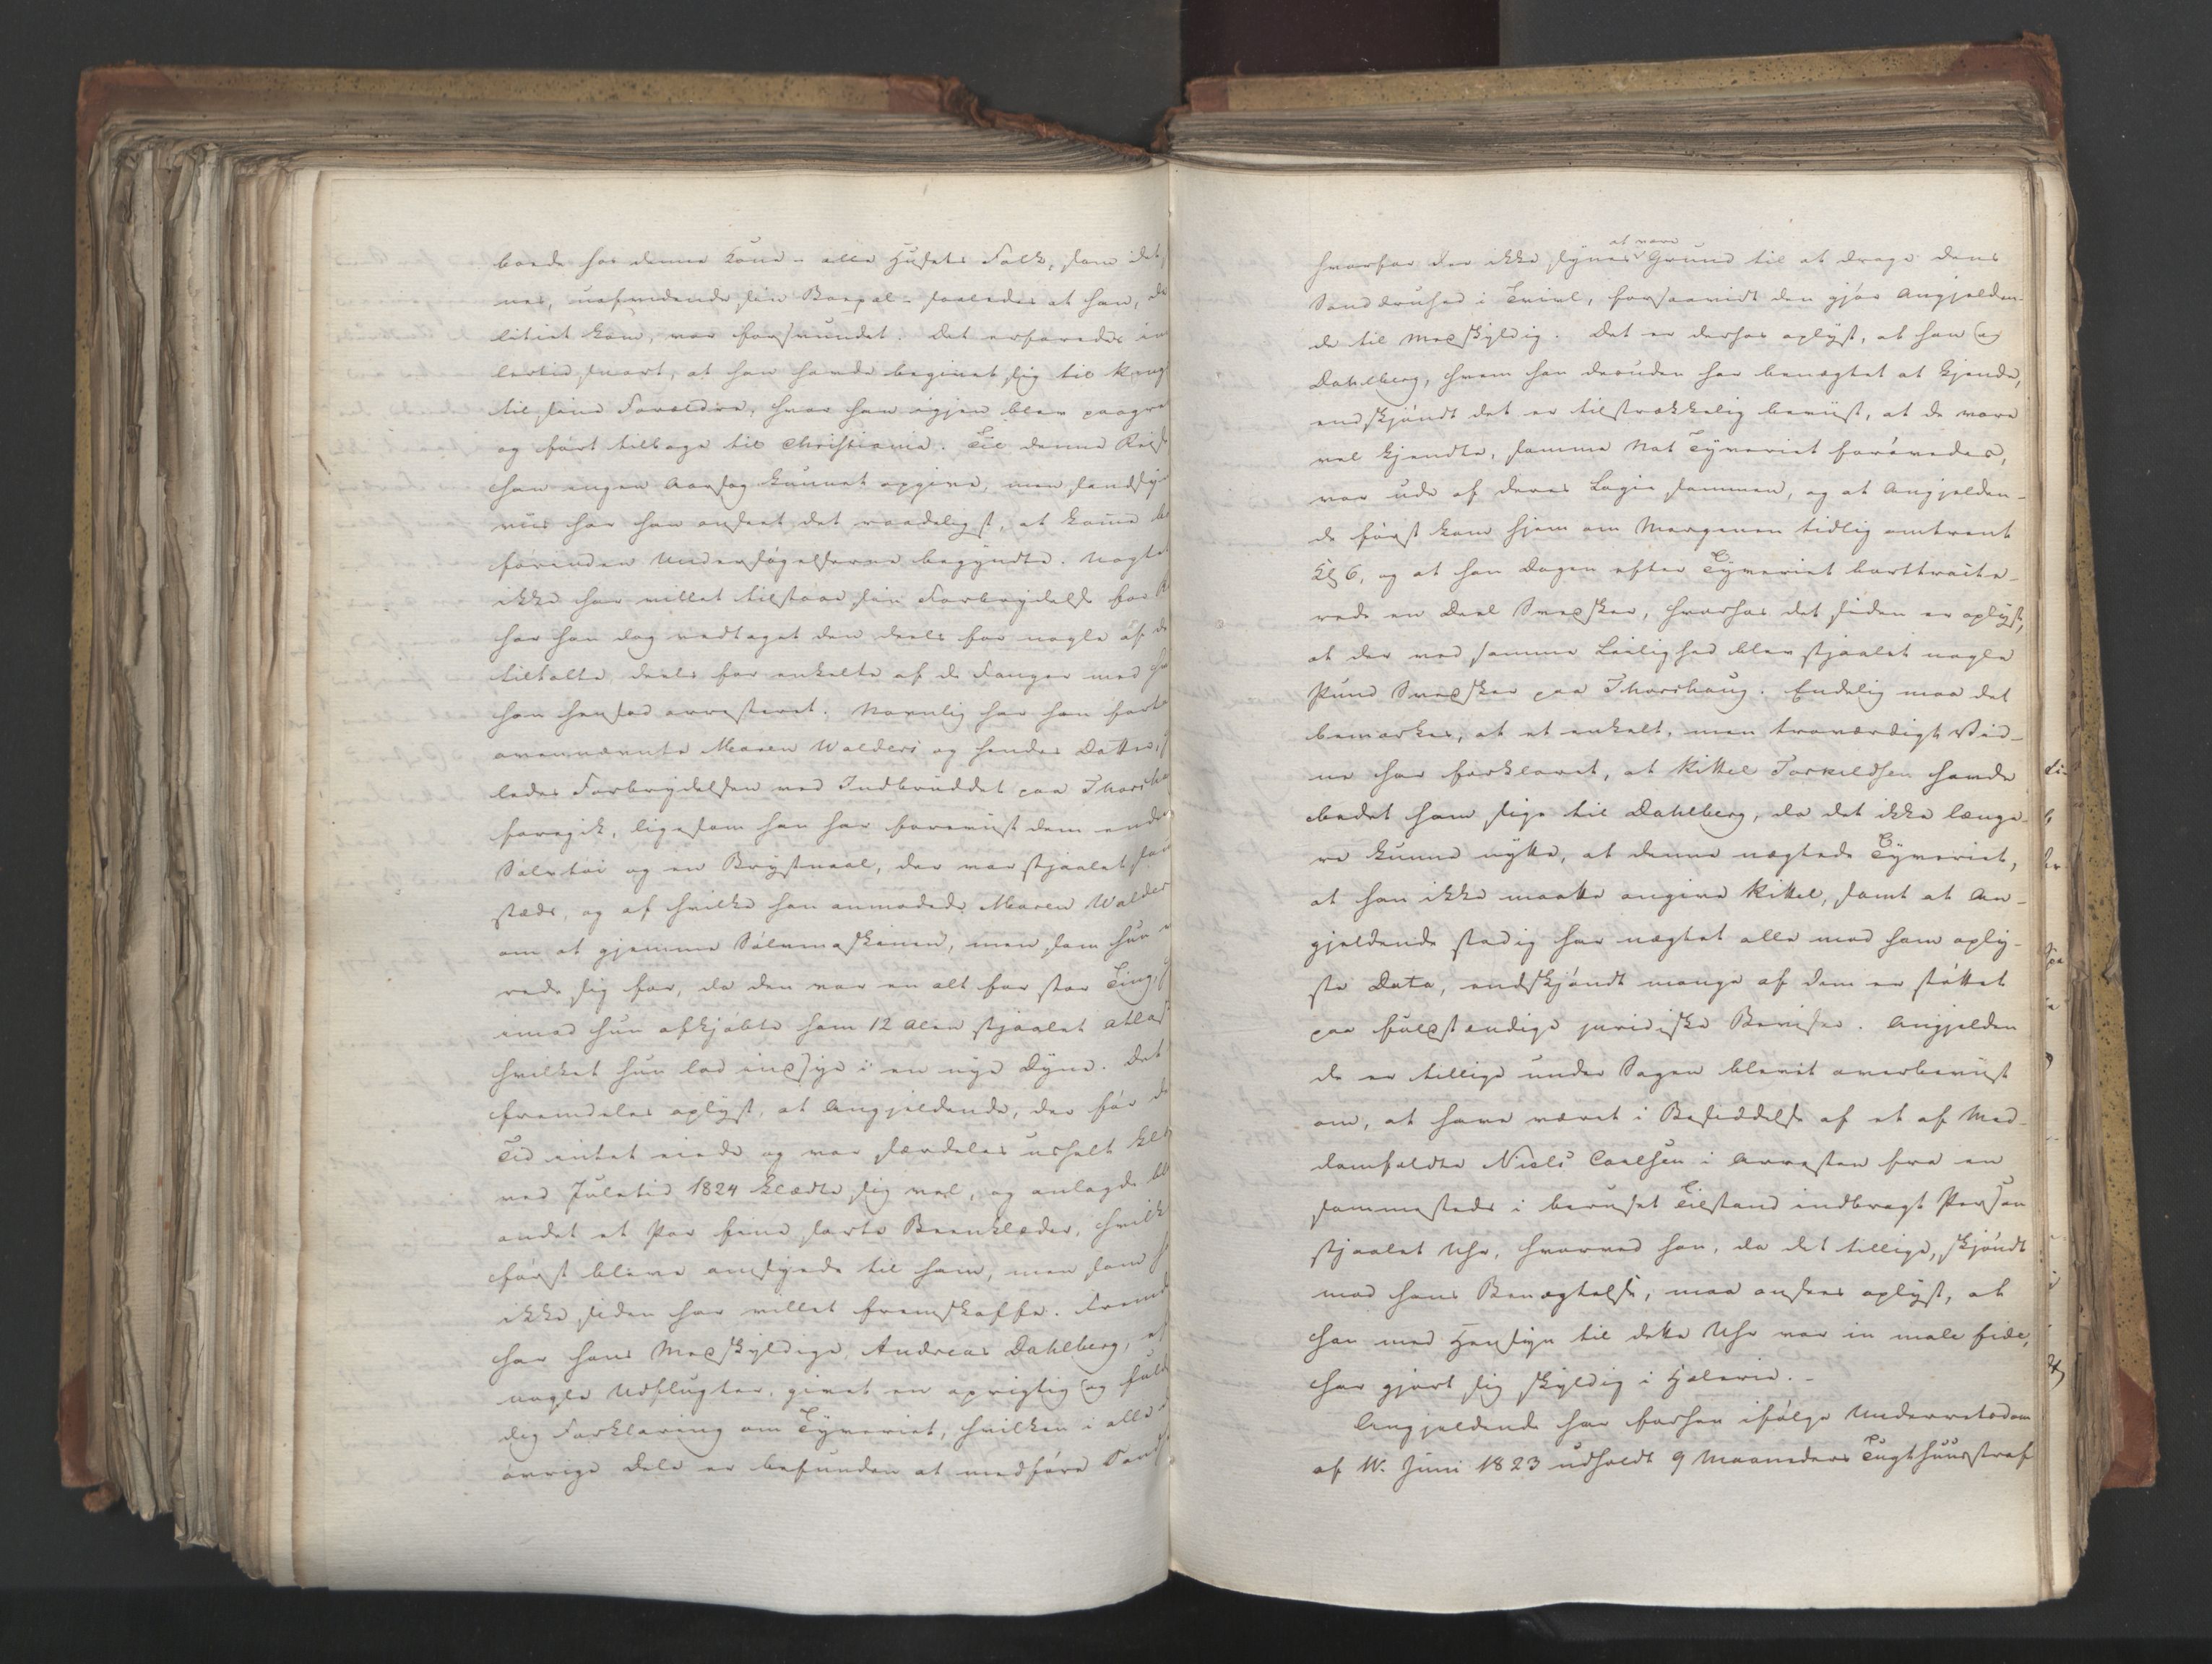 boede hos denne Kone - alle Husets Folk, som det
nes, uafvidende sin Bopæl - saaledes at han, da
litiet kom, var forsvundet. Det erfaredes im
lertid snart, at han havde begivet sig til Kong
til sine Forældre, hvor han igjen blev paagre
og ført tilbage til Christiania. Til denne Reise
han ingen Aarsag kunnet opgive, men sandsyn
viis har han anseet det raadeligst, at komme
førinden Undersøgelserne begyndte. Uagtet
ikke har villet tilstaae sin Forbrydelse for
har han dog vedtaget den deels for nogle af de
tiltalte, deels for enkelte af de Fanger med
han hensad arresteret. Navnlig har han fort
ovennævnte Maren Walders og hendes Datter,
ledes Forbrydelsen ved Indbruddet paa Thorsha
foregik, ligesom han har foreviist dem ende
Sølvtøi og en Brystnaal, der var stjaalet sam
steds, og af hvilke han anmodede Maren Walder
om at gjemme Sølvmaskinen, men som hun
rede sig for, da den var en alt for stor Ting,
imod hun afkjøbte ham 12 Alen stjaalet Atlas
hvilket hun lod indsye i en nye Dyne. Det
fremdeles oplyst, at Angjeldende, der før de
Tid intet eiede og var særdeles usselt klæ
ved Juletid 1824 klædte sig vel, og anlagde bl
andet et Par fine sorte Beenklæder, hvilk
først bleve omsyede til ham, men som h
ikke siden har villet fremskaffe. Fremd
har hans Medskyldige, Andreas Dahlberg, ef
nogle Udflugter, givet en oprigtig og fuld
dig Forklaring om Tyveriet, hvilken i alle
øvrige Dele er befunden at medføre Sand
hvorfor der ikke synes at være Grund til at drage dens
Sanddruhed i Tvivl, forsaavidt den gjør Angjelden-
de til Medskyldig. Det er derhos oplyst, at han og
Dahlberg, hvem han desuden har benægtet at kjende,
endskjøndt det er tilstrækkelig beviist, at de vare
vel kjendte, samme Nat Tyveriet forøvedes,
var ude af deres Logie sammen, og at Angjelden-
de først kom hjem om Morgenen tidlig omtrent
Kl 6, og at han Dagen efter Tyveriet borttraite-
rede en Deel Svedsker, hvorhos det siden er oplyst,
at der ved samme Leilighed blev stjaalet nogle
Pund Svedsker paa Thorshaug. Endelig maa det
bemærkes, at et enkelt, men troværdigt Vid-
ne har forklaret, at Kittel Torkeldsen havde
bedet ham sige til Dahlberg, da det ikke længe-
re kunne nytte, at denne nægtede Tyveriet,
at han ikke maatte angive Kittel, samt at An-
gjeldende stadig har nægtet alle mod ham oply-
ste Data, endskjøndt mange af dem er støttet
paa fuldstændige juridiske Beviser. Angjelden
de er tillige under Sagen blevet overbeviist
om, at have været i Besiddelse af et af Med-
domfældte Niels Carlsen i Arresten fra en
sammesteds i beruset Tilstand indbragt Person
stjaalet Uhr, hvorved han, da det tillige, skjøndt
mod hans Benægtelse, maa ansees oplyst, at
han med Hensyn til dette Uhr var in mala fide,
har gjort sig skyldig i Hæleri. -
Angjeldende har forhen ifølge Underretsdom
af 11. Juni 1823 udholdt 9 Maaneders Tugthuusstraf